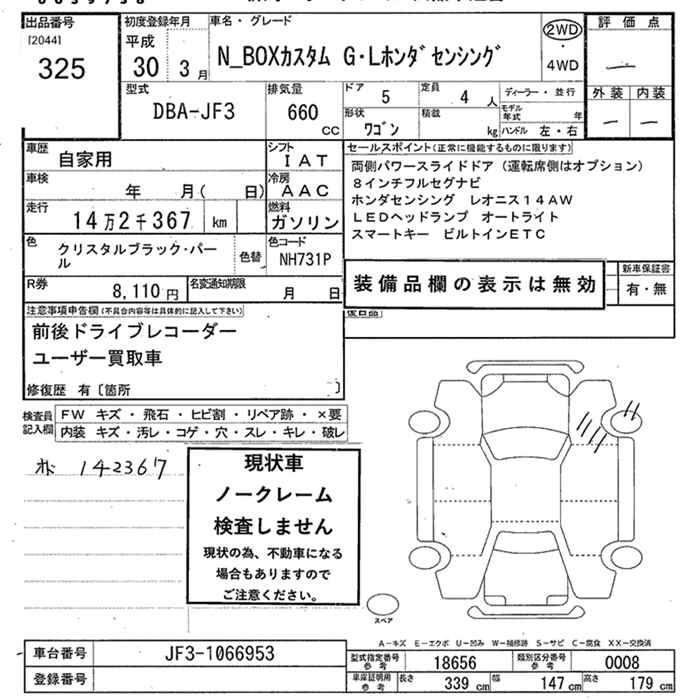 出品番号
[2044]
325
初度登録年月
平成
30 3月
車名・グレード
N_BOXカスタム G・Lホンダセンシング
2WD
・
4WD
評価点
―
外装 内装
― ―
型式
DBA-JF3
排気量
660
cc
ドア 5
定員 4 人
ディーラー・並行
形状 ワゴン
積載 kg
モデル年式 年
ハンドル 左・右
車歴 自家用
シフト
IAT
車検 年 月( 日)
冷房
AAC
走行 14万2千367 km
燃料
ガソリン
色 クリスタルブラック・パール
色替
色コード
NH731P
R券 8,110円
名変通知期限 月 日
セールスポイント(正常に機能するものに限ります)
両側パワースライドドア(運転席側はオプション)
8インチフルセグナビ
ホンダセンシング レオニス14AW
LEDヘッドランプ オートライト
スマートキー ビルトインETC
装備品欄の表示は無効
新車保証書
有・無
注意事項申告欄(不具合内容等は具体的に記入して下さい)
前後ドライブレコーダー
ユーザー買取車
修復歴 有〔箇所 〕
検査員記入欄
FW キズ・飛石・ヒビ割・リペア跡・×要
内装 キズ・汚レ・コゲ・穴・スレ・キレ・破レ
142367
現状車
ノークレーム
検査しません
現状の為、不動車になる
場合もありますので
ご注意ください。
スペア
A-キズ E-エクボ U-凹み W-補修跡 S-サビ C-腐食 XX-交換済
車台番号 JF3-1066953
登録番号
型式指定番号 参考 18656
類別区分番号 参考 0008
車庫証明用 参考 長さ 339cm 幅 147cm 高さ 179cm